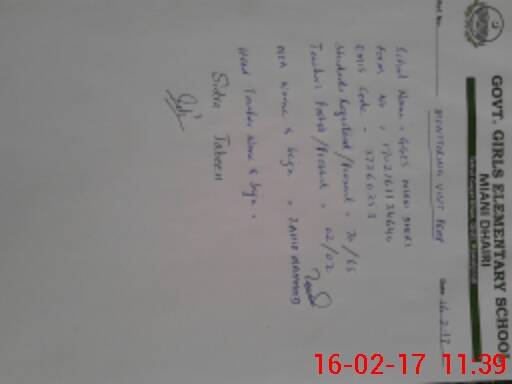 GOVT. GIRLS ELEMENTARY SCHOOL
MIANI DHAIRI
Date 16-2-17
MONITORING VISIT
School Name = GGES MIANI DHERI
Form No = 1702161134640
EMIS Code = 37360353
Students Registered / Present = 70/65
Teachers Posted / Present = 02/02
MEA Name & Sign = ZAHID MAHMOOD
Head Teacher Name & Sign =
Sidra Jabeen
16-02-17 11:39